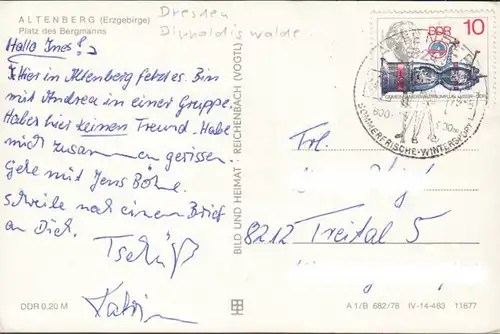 ALTENBERG (Erzgebirge)
Platz des Bergmanns
Dresden
Dippoldiswalde
Hallo Ines!
Hier in Altenberg fetzt es. Bin
mit Andrea in einer Gruppe.
Habe hier keinen Freund. Habe
mich zusammen gerissen.
Gehe mit Jens Böhme.
schreibe noch einen Brief
an Dich.
Tschüß
Katrin
DDR 0,20 M
BILD UND HEIMAT REICHENBACH (VOGTL)
DDR 10
SOMMERFRISCHE-WINTERSPORT
Frl.
8212 Freital 5
A 1/B 682/78 IV-14-483 11677